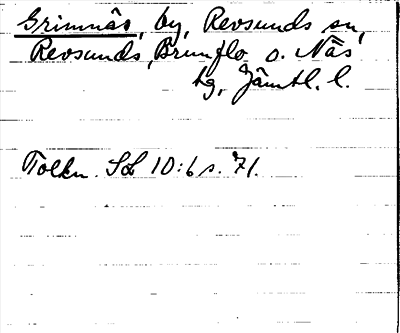 Grimnäs, by, Revsunds sn,
Revsunds, Brunflo o. Näs
tg, Jämtl. l.
Tolkn. SOL 10:6 s. 71.